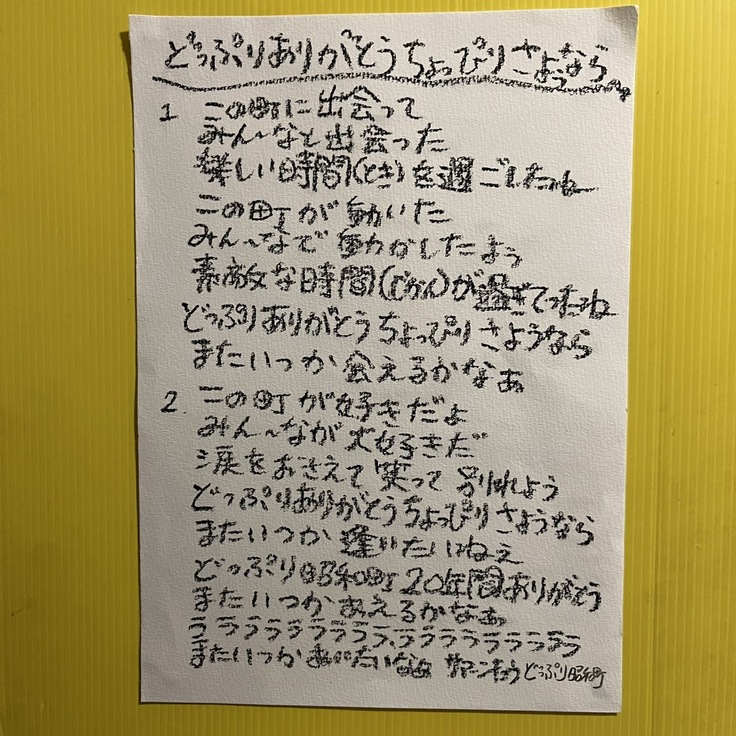 どっぷりありがとうちょっぴりさようなら
1 この町に出会って
みん〜なと出会った
楽しい時間(とき)を過ごしたね
この町が動いた
みん〜なで動かしたよう
素敵な時間(じかん)が過ぎてったね
どっぷりありがとうちょっぴりさようなら
またいつか会えるかなぁ
2. この町が好きだよ
みん〜なが大好きだ
涙をおさえて笑って別れよう
どっぷりありがとうちょっぴりさようなら
またいつか逢いたいねぇ
どっぷり昭和町20年間ありがとう
またいつかあえるかなぁ
ラララララララララララララララララ
またいつかあいたいなぁ どっぷり昭和町